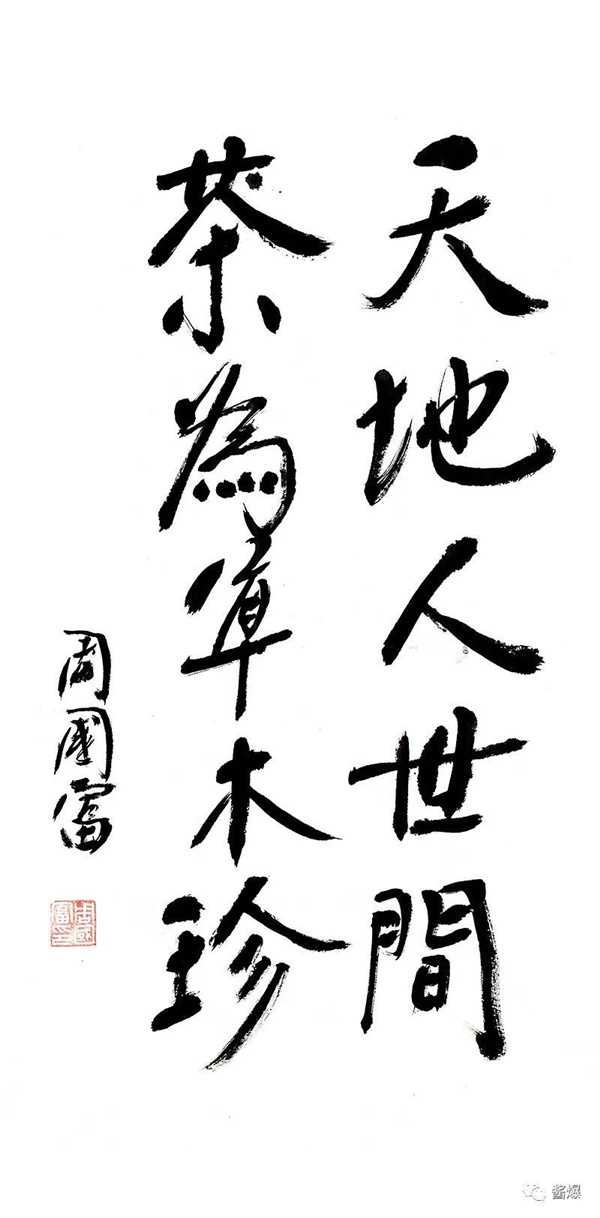 天地人世間
茶為草木珍
周國富
周國富印
酱爆